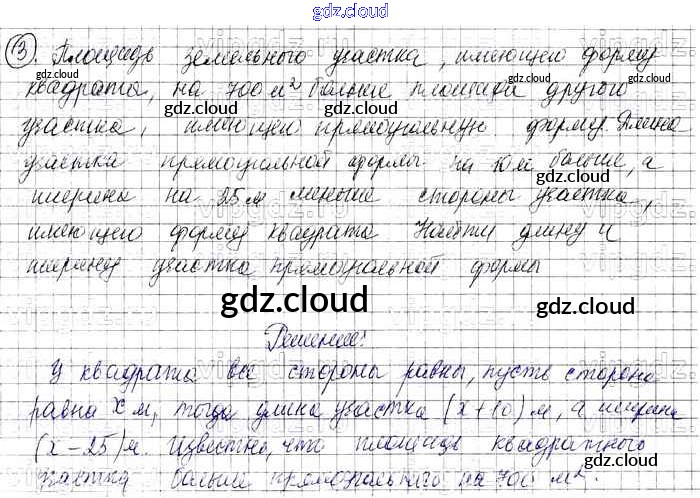 gdz.cloud
3. Площадь земельного участка, имеющего форму
квадрата, на 700 м² больше площади другого
участка, имеющего прямоугольную форму. Длина
участка прямоугольной формы на 10 м больше, а
ширина на 25 м меньше стороны участка,
имеющего форму квадрата Найти длину и
ширину участка прямоугольной формы
gdz.cloud
Решение:
У квадрата все стороны равны, пусть сторона
равна x м, тогда длина участка (x+10) м, а ширина
(x-25) м. Известно, что площадь квадратного
участка больше прямоугольного на 700 м².